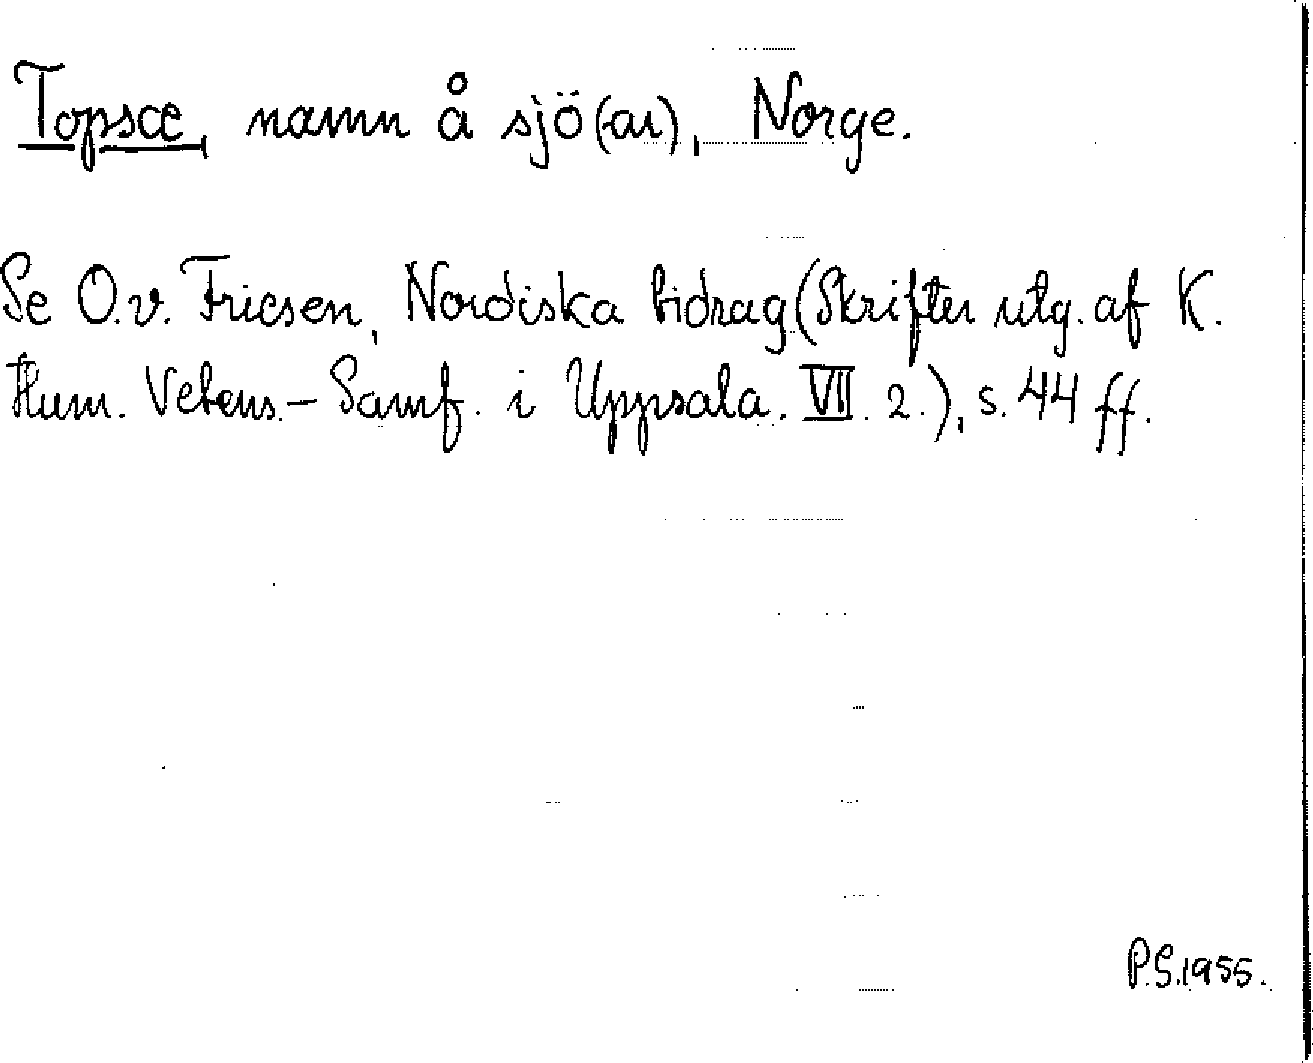 Topsæ, namn å sjö(ar), Norge.
Se O.v. Friesen, Nordiska bidrag (Skrifter utg. af K.
Hum. Vetens.-Samf. i Uppsala. VII. 2.), s. 44 ff.
P.S. 1955.